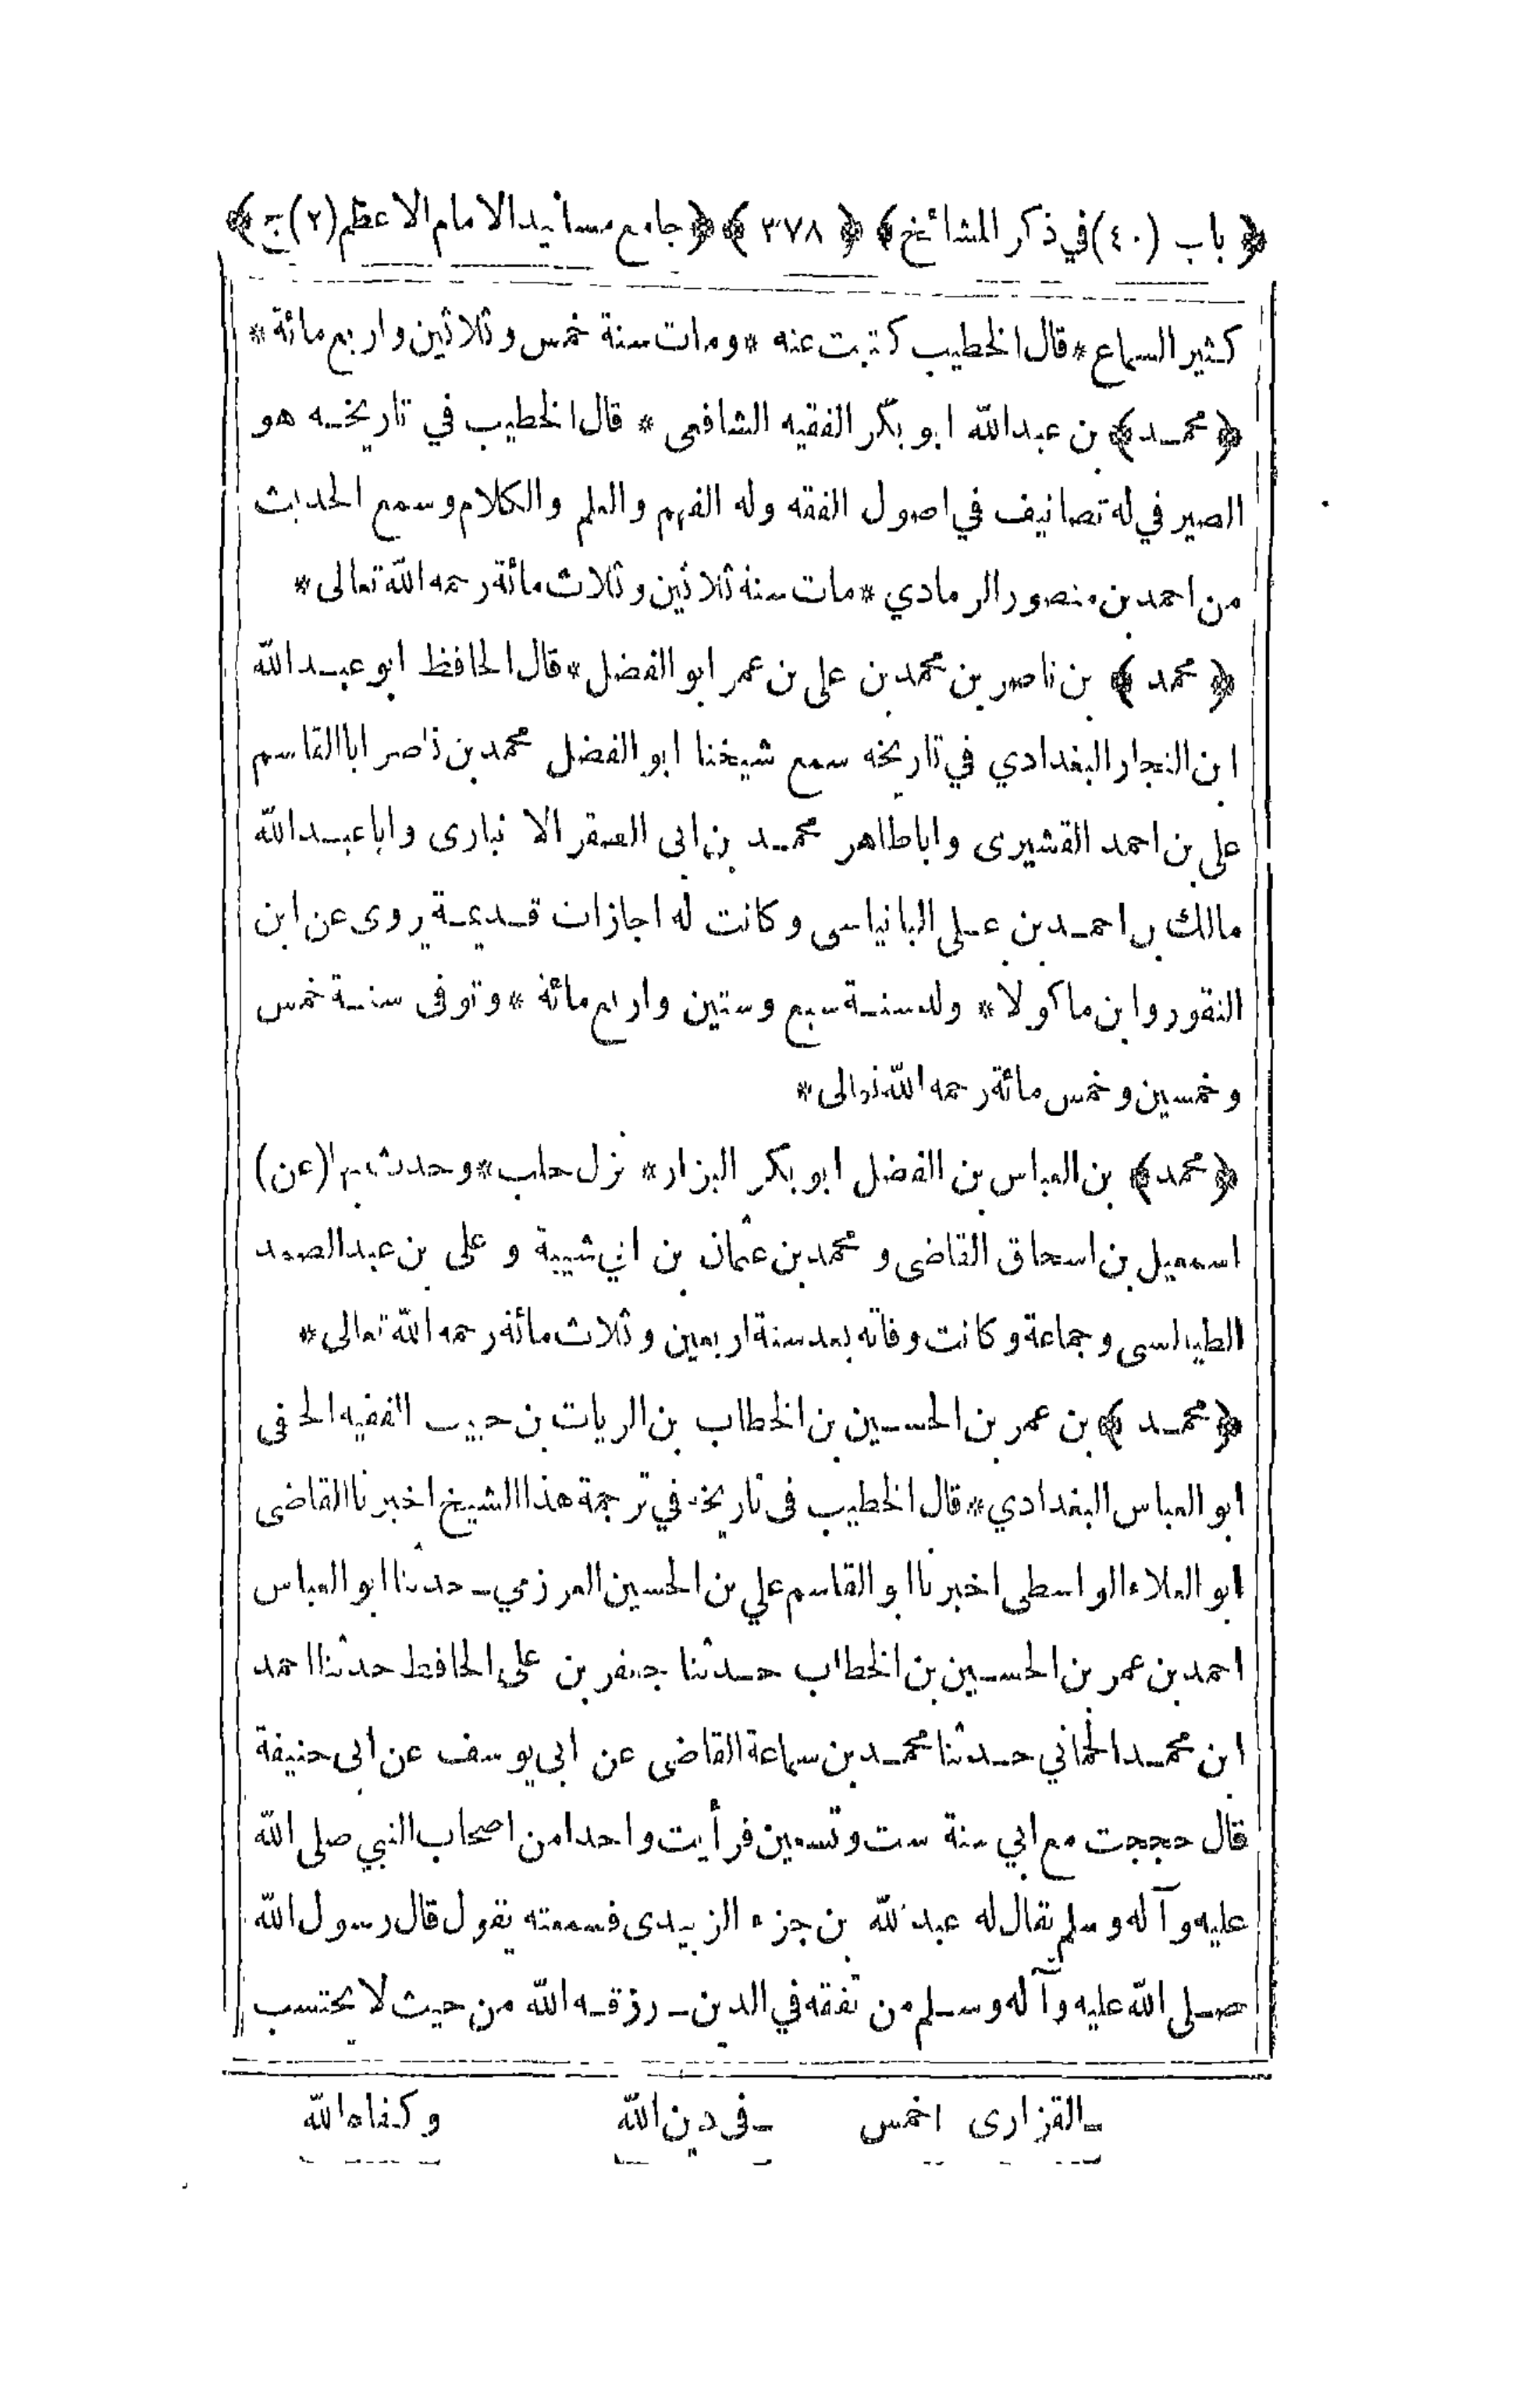 ﴿ باب (٤٠) في ذكر المشائخ ﴾ ﴿ ٣٧٨ ﴾ ﴿ جامع مسانيد الامام الاعظم (٢) ج ﴾
كثير السماع * قال الخطيب كتبت عنه * ومات سنة خمس وثلاثين واربع مائة *
﴿ محمد ﴾ بن عبدالله ابو بكر الفقيه الشافعى * قال الخطيب في تاريخه هو
الصير في له تصانيف في اصول الفقه وله الفهم والعلم والكلام وسمع الحديث
من احمد بن منصور الرمادي * مات سنة ثلاثين وثلاث مائة رحمه الله تعالى *
﴿ محمد ﴾ بن ناصر بن محمد بن على بن عمر ابو الفضل * قال الحافظ ابو عبدالله
ابن النجار البغدادي في تاريخه سمع شيخنا ابو الفضل محمد بن ناصر ابا القاسم
على بن احمد القشيرى وابا طاهر محمد بن ابى الصقر الانبارى وابا عبدالله
مالك بن احمد بن على البانياسى وكانت له اجازات قديمة روى عن ابن
النقور وابن ماكولا * ولد سنة سبع وستين واربع مائة * وتوفى سنة خمس
وخمسين وخمس مائة رحمه الله تعالى *
﴿ محمد ﴾ بن العباس بن الفضل ابو بكر البزار * نزل حلب * وحدث بها (عن)
اسمعيل بن اسحاق القاضى و محمد بن عثمان بن ابي شيبة و على بن عبد الصمد
الطيالسى وجماعة وكانت وفاته بعد سنة اربعين وثلاث مائة رحمه الله تعالى *
﴿ محمد ﴾ بن عمر بن الحسين بن الخطاب بن الريات بن حبيب الفقيه الحنفى
ابو العباس البغدادي * قال الخطيب فى تاريخه في ترجمة هذا الشيخ اخبرنا القاضى
ابو العلاء الواسطى اخبرنا ابو القاسم علي بن الحسين العرزمي ـ حدثنا ابو العباس
احمد بن عمر بن الحسين بن الخطاب حدثنا جعفر بن على الحافظ حدثنا احمد
ابن محمد الحماني حدثنا محمد بن سماعة القاضى عن ابي يوسف عن ابى حنيفة
قال حججت مع ابي سنة ست وتسعين فرأيت واحدا من اصحاب النبي صلى الله
عليه وآله وسلم يقال له عبد الله بن جزء الزبيدى فسمعته يقول قال رسول الله
صلى الله عليه وآله وسلم من تفقه في الدين ـ رزقه الله من حيث لا يحتسب
ـ القزارى اخمس ـ فى دين الله وكفاه الله